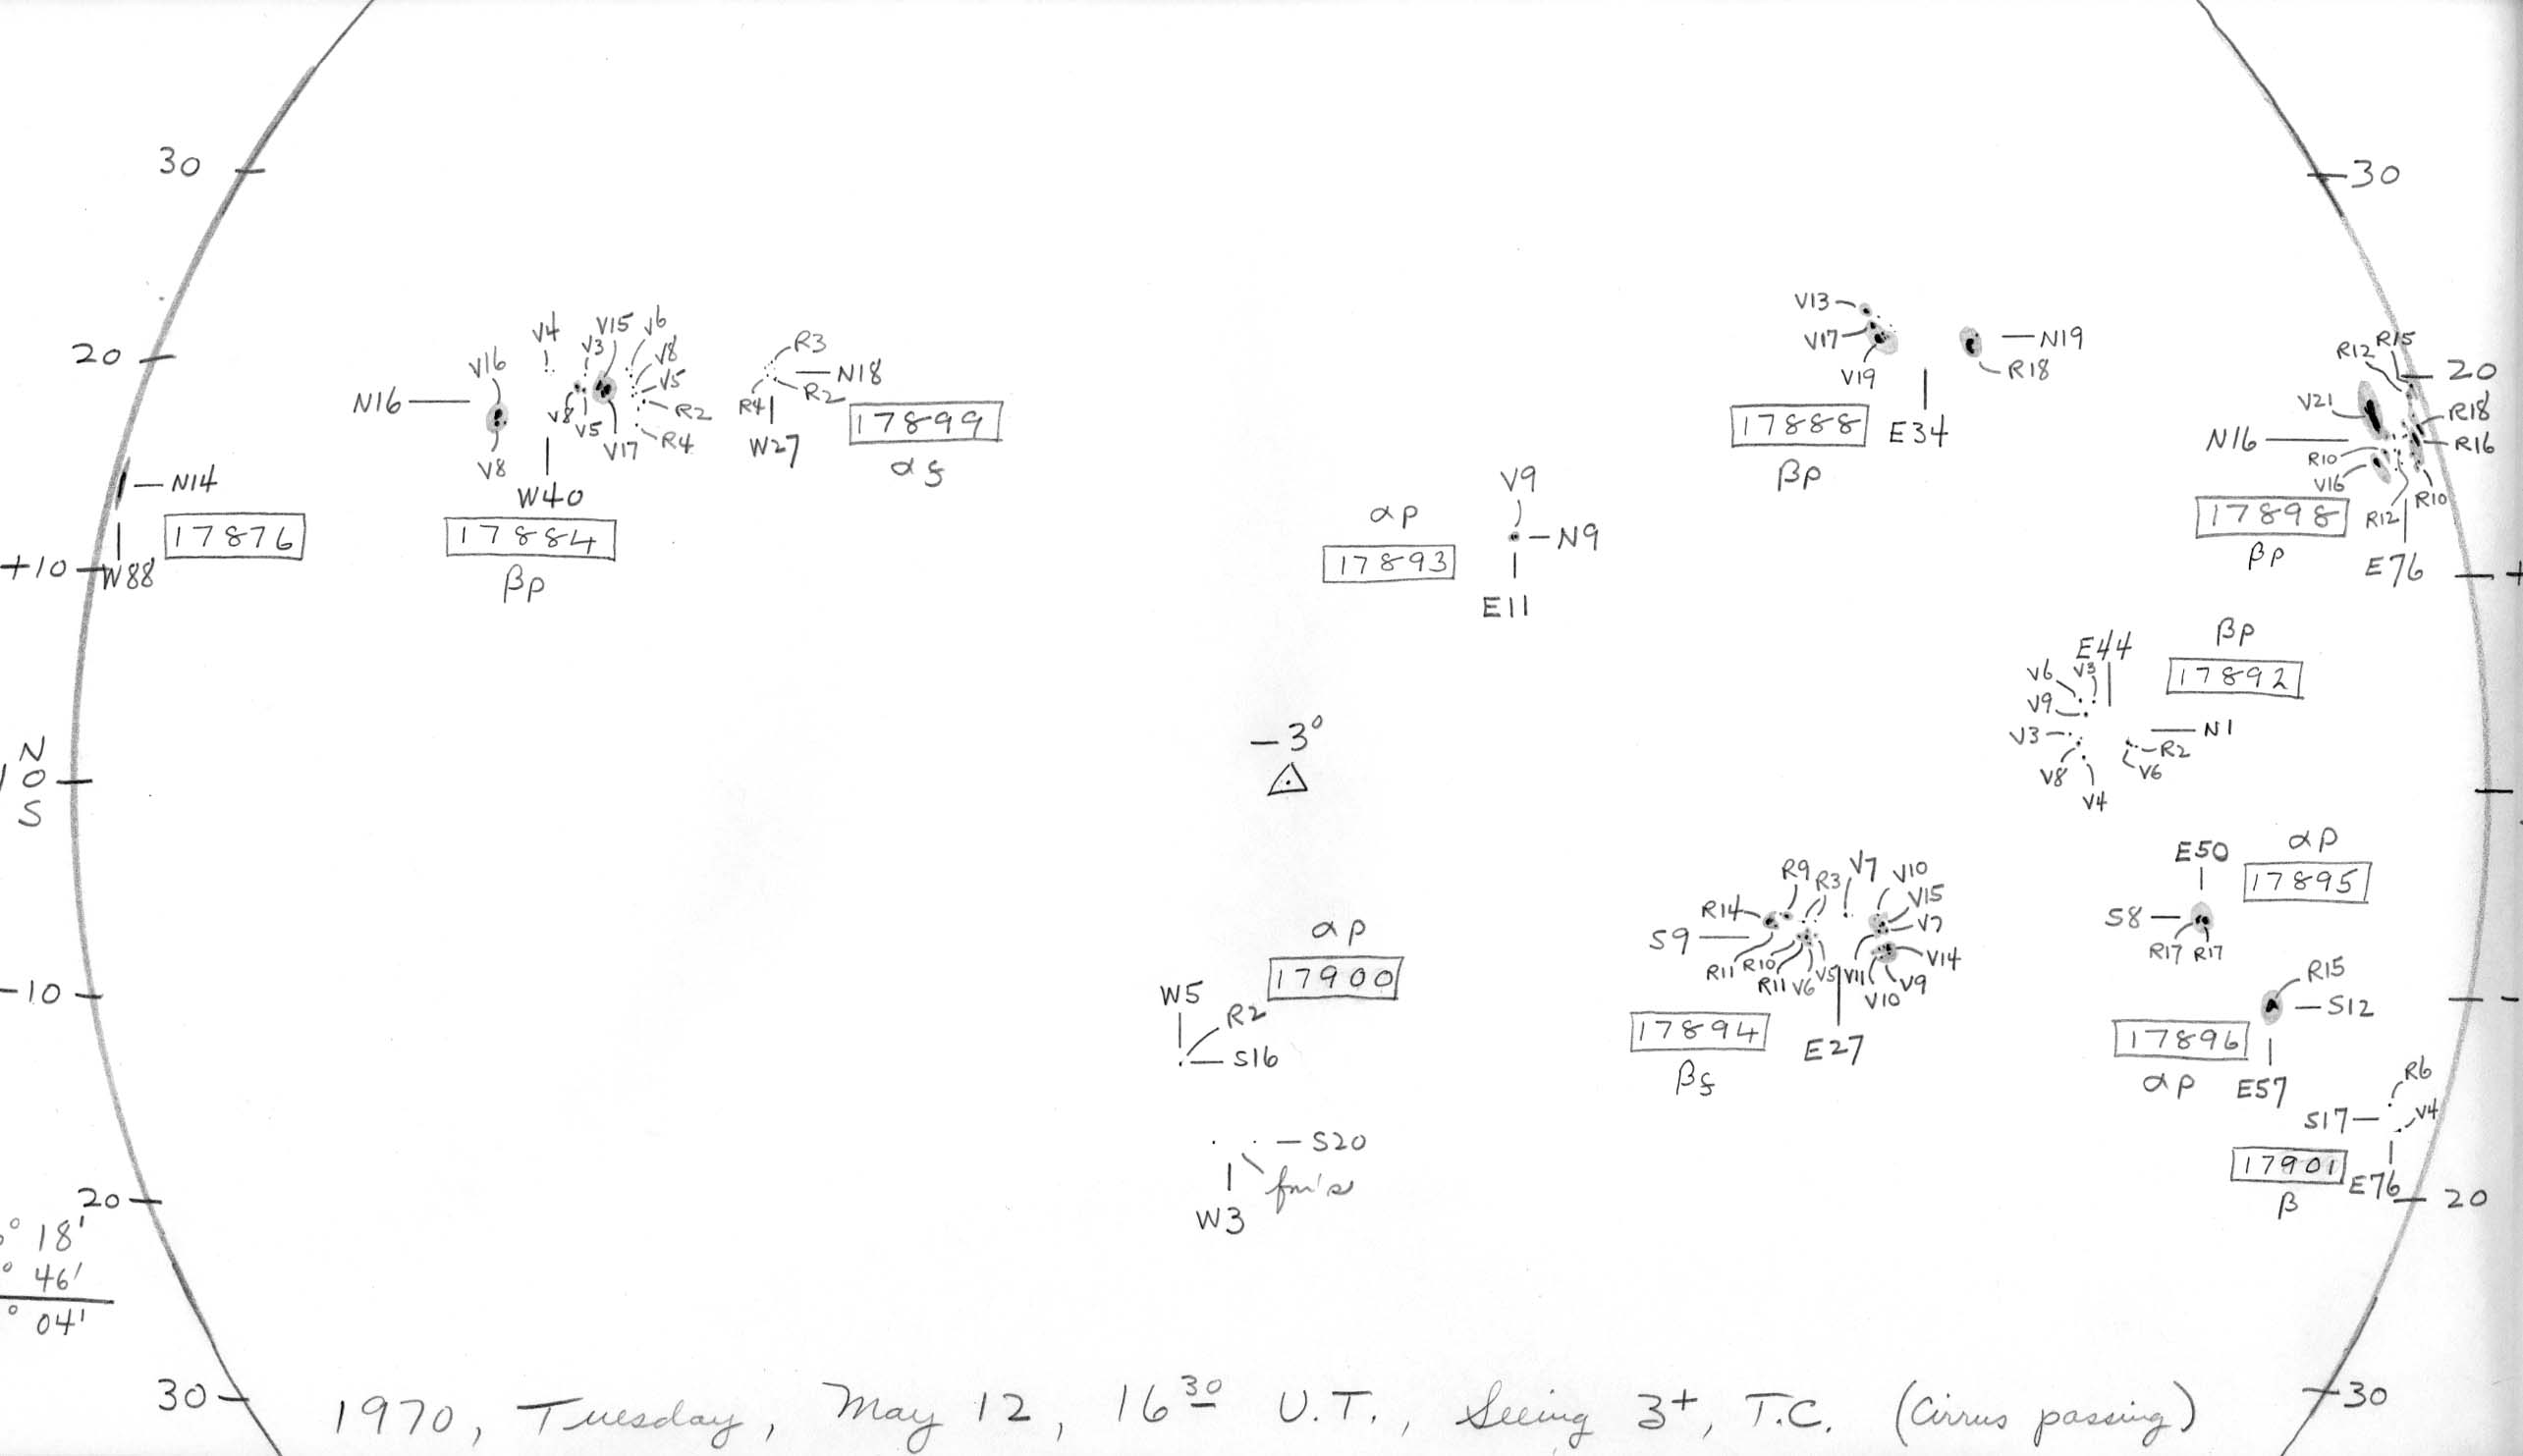 30
30
20
20
N16
V16
V8
V4
V3
V15
V6
V8
V5
R2
R4
V8
V5
V17
W40
17884
βp
R3
N18
R2
R4
W27
17899
αf
N14
W88
17876
+10
V13
V17
V19
N19
R18
17888
E34
βp
V9
N9
αp
17893
E11
R12
R15
V21
R18
R16
N16
R10
V16
R12
R10
17898
βp
E76
+
E44
βp
17892
V6
V3
V9
V3
V8
V4
N1
R2
V6
N
0
S
-3°
E50
αp
17895
S8
R17
R17
R14
R9
R3
V7
V10
V15
V7
S9
R11
R10
R11
V6
V5
V11
V10
V9
V14
17894
βf
E27
αp
17900
W5
R2
S16
-10
-
R15
S12
17896
αp
E57
R6
S17
V4
17901
β
E76
S20
fm's
W3
20
20
° 18'
° 46'
° 04'
30
30
1970, Tuesday, May 12, 16 30 U.T., Seeing 3+, T.C. (Cirrus passing)